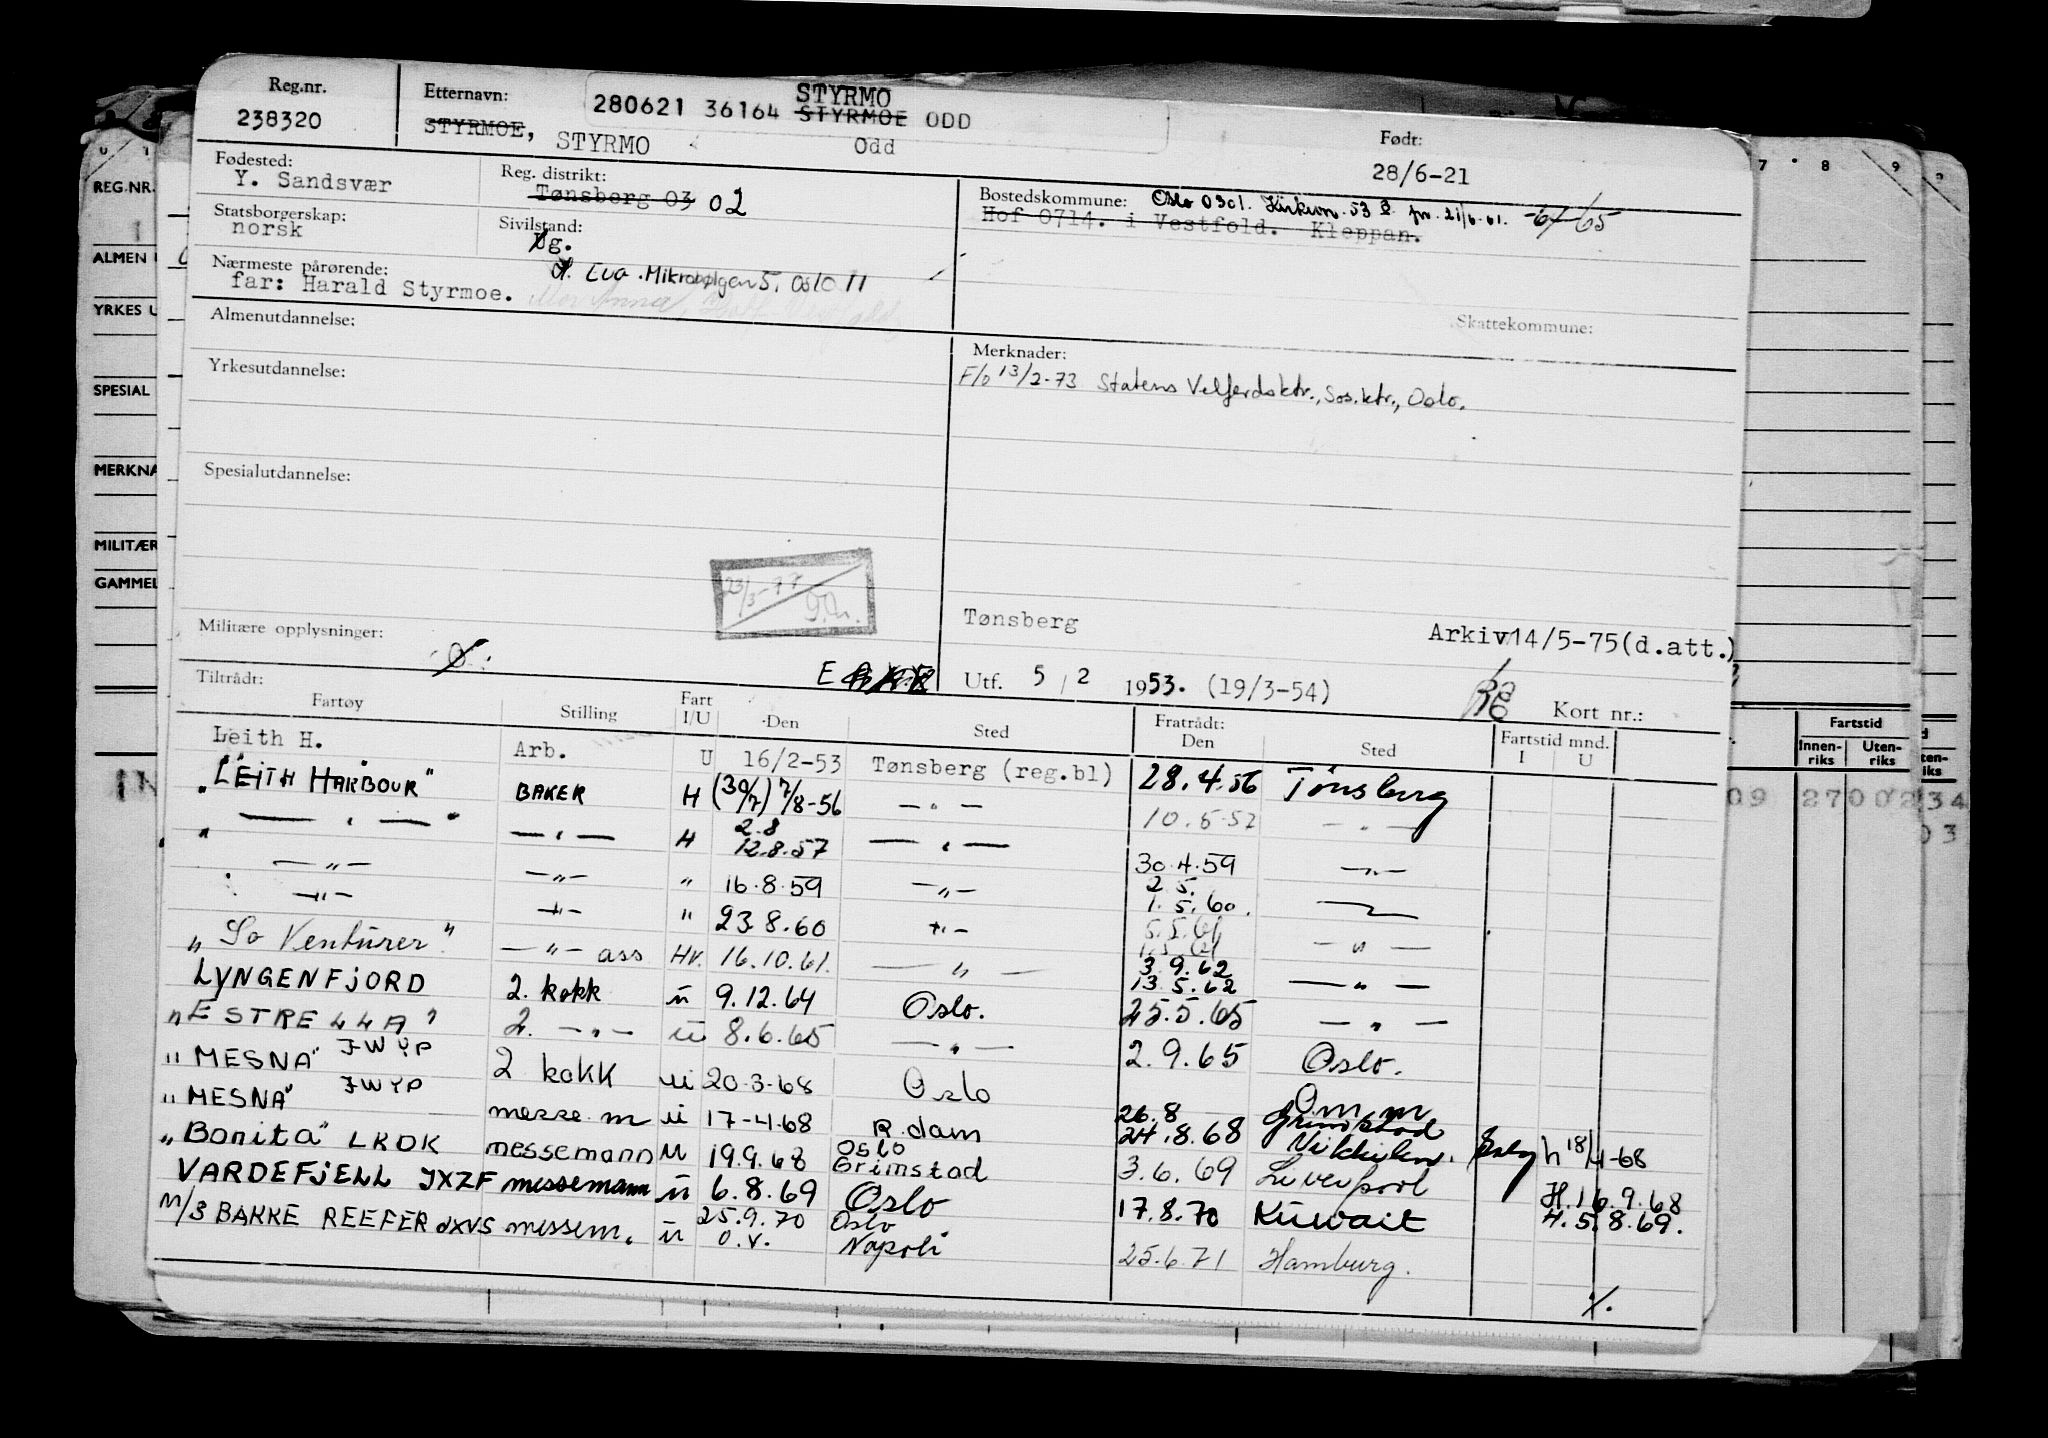 Reg.nr. Etternavn: STYRMO
238320 280621 36164 STYRMOE ODD
STYRMOE, STYRMO Odd Født:
28/6-21
Fødested: Reg. distrikt: Bostedskommune: Oslo 0301. Kirkvn. 53 fr. 21/6-61. -64-65
Y. Sandsvær Tønsberg 03 02 Hof 0714. i Vestfold. Kleppan.
Statsborgerskap: Sivilstand:
norsk g.
Nærmeste pårørende: Eva. Mikrobølgen 5, Oslo 11
far: Harald Styrmoe. Mor Anna,
Skattekommune:
Almenutdannelse:
Merknader:
F/o 13/2-73 Statens Velferdsktr., Sos.ktr., Oslo.
Yrkesutdannelse:
Spesialutdannelse:
23/5-77
Militære opplysninger:
Tønsberg Arkiv 14/5-75(d.att.)
E Utf. 5 / 2 1953. (19/3-54) Kort nr.:
Tiltrådt: Fratrådt:
Fartøy Stilling Fart I/U Den Sted Den Sted Fartstid mnd. I U
Leith H. Arb. U 16/2-53 Tønsberg (reg.bl) 28.4.56 Tønsberg
"LEITH HARBOUR" BAKER H (30/7) 7/8-56 — " — 10.5.57 — " —
" — " — " — " — H 2.8 12.8.57 — " — 30.4.59 — " —
— " — — " — " 16.8.59 — " — 2.5. 1.5.60.
— " — — " — " 23.8.60 — " — 5.5.61 1.5.61 — " —
"So Venturer" — " — ass Hv. 16.10.61. — " — 3.9.62 13.5.62 — " —
LYNGENFJORD 2. kokk u 9.12.64 Oslo. 25.5.65 — " —
"ESTRELLA" 2. — " — u 8.6.65 — " — 2.9.65 Oslo.
"MESNA" JWYP 2 kokk u 20-3-68 Oslo
"MESNA" JWYP messe m u 17-4-68 R.dam 26.8 24.8.68 Grimstad Vikkilen. h 18/4-68
"Bonita" LKDK messemann U 19.9.68 Oslo Grimstad 3.6.69 Liverpool H.16.9.68
VARDEFJELL JXZF messemann u 6.8.69 Oslo 17.8.70 Kuwait H.5.8.69.
M/S BAKKE REEFER JXVS messem. u 25.9.70 o.v. Oslo Napoli 25.6.71 Hamburg.
7 8 9
REG.NR.
ALMEN
YRKES U
SPESIAL
MERKNA
MILITÆR
GAMMEL
Fartstid
Innenriks Utenriks
09 27 00 2 34
03